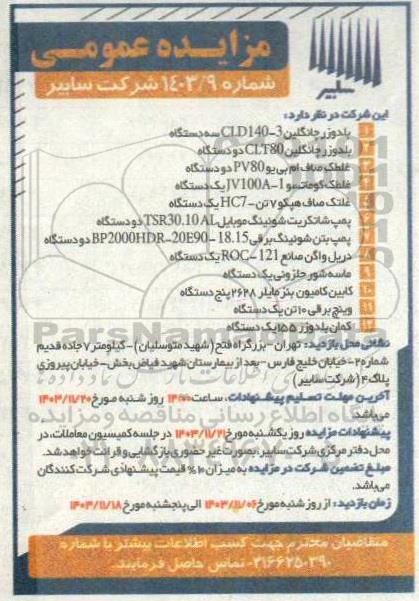 سابیر
مزایده عمومی
شماره ۱۴۰۳/۹ شرکت سابیر
این شرکت در نظر دارد:
۱ بلدوزر چانگلین CLD140-3 سه دستگاه
۲ بلدوزر چانگلین CLT80 دو دستگاه
۳ غلطک صاف ام بی یو PV80 دو دستگاه
۴ غلطک کوماتسو JV100A-1 یک دستگاه
۵ غلتک صاف هپکو ۷ تن - HC7 یک دستگاه
۶ پمپ شاتکریت شوئینگ موبایل TSR30.10 AL دو دستگاه
۷ پمپ بتن شوئینگ برقی BP2000HDR-20E90-18.15 دو دستگاه
۸ دریل واگن صانع ROC-121 یک دستگاه
۹ ماسه شور حلزونی یک دستگاه
۱۰ کابین کامیون بنز مایلر ۲۶۲۸ پنج دستگاه
۱۱ وینچ برقی ۱۰ تن یک دستگاه
۱۲ کمان بلدوزر ۱۵۵ یک دستگاه
نشانی محل بازدید: تهران - بزرگراه فتح (شهید متوسلیان) - کیلومتر ۷ جاده قدیم
شماره ۲ - خیابان خلیج فارس - بعد از بیمارستان شهید فیاض بخش - خیابان پیروزی
پلاک ۴ (شرکت سابیر)
آخرین مهلت تسلیم پیشنهادات، ساعت ۱۴:۰۰ روز شنبه مورخ ۱۴۰۳/۱۱/۲۰
می‌باشد.
پیشنهادات مزایده روز یکشنبه مورخ ۱۴۰۳/۱۱/۲۱ در جلسه کمیسیون معاملات، در
محل دفتر مرکزی شرکت سابیر، بصورت غیر حضوری بازگشایی و قرائت خواهد شد.
مبلغ تضمین شرکت در مزایده به میزان ۱۰٪ قیمت پیشنهادی شرکت کنندگان
می‌باشد.
زمان بازدید: از روز شنبه مورخ ۱۴۰۳/۱۱/۰۶ الی پنجشنبه مورخ ۱۴۰۳/۱۱/۱۸
متقاضیان محترم جهت کسب اطلاعات بیشتر با شماره
۰۲۱۶۶۲۵۰۳۹۰ تماس حاصل فرمایند.
ParsNamad
پایگاه اطلاع رسانی مناقصه و مزایده